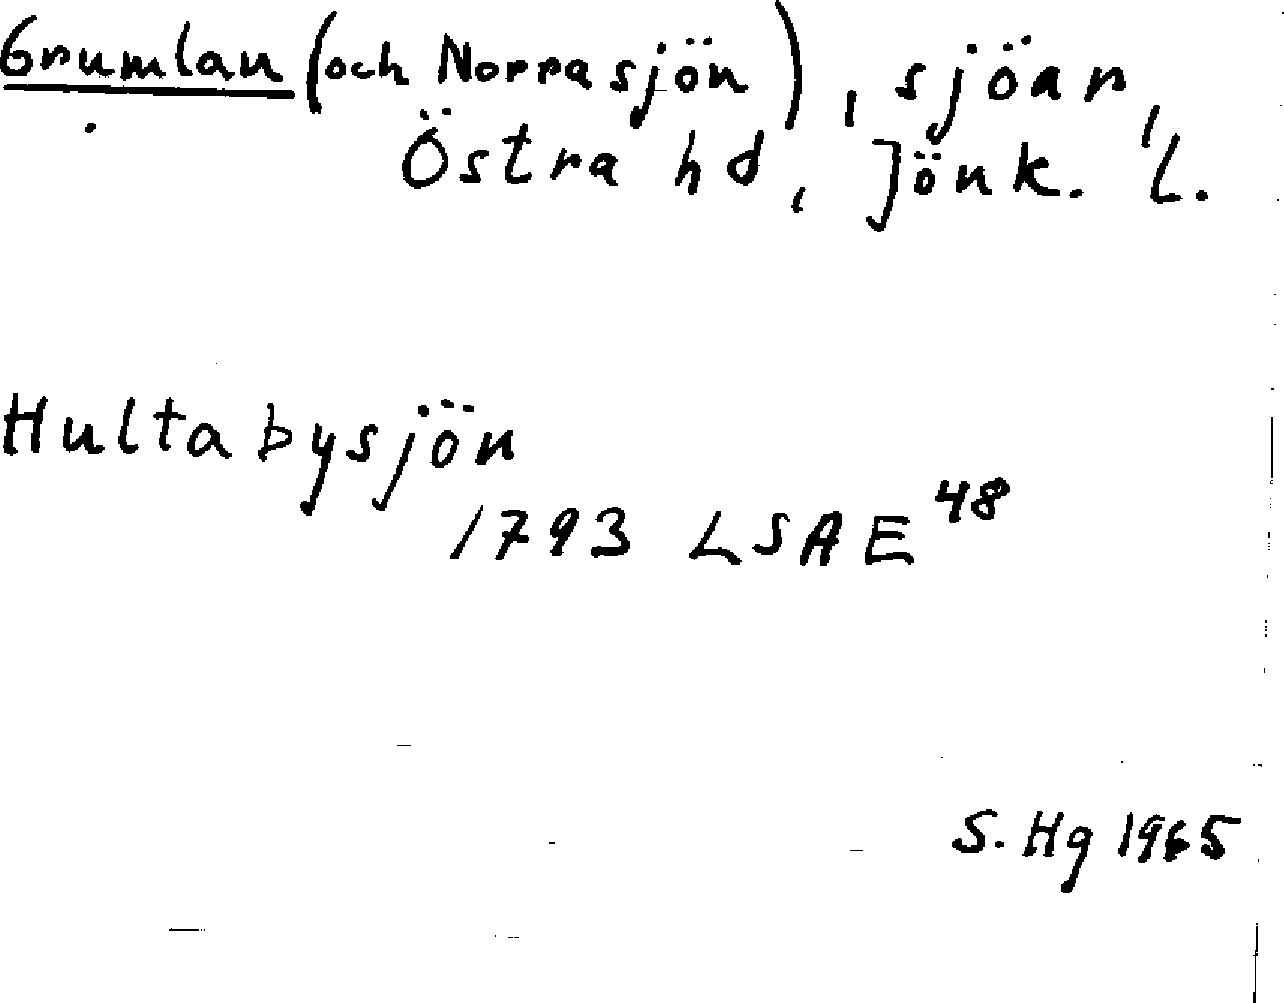 Grumlan (och Norrasjön), sjöar,
Östra hd, Jönk. l.
Hultabysjön
1793 LSA E48
S. Hg 1965